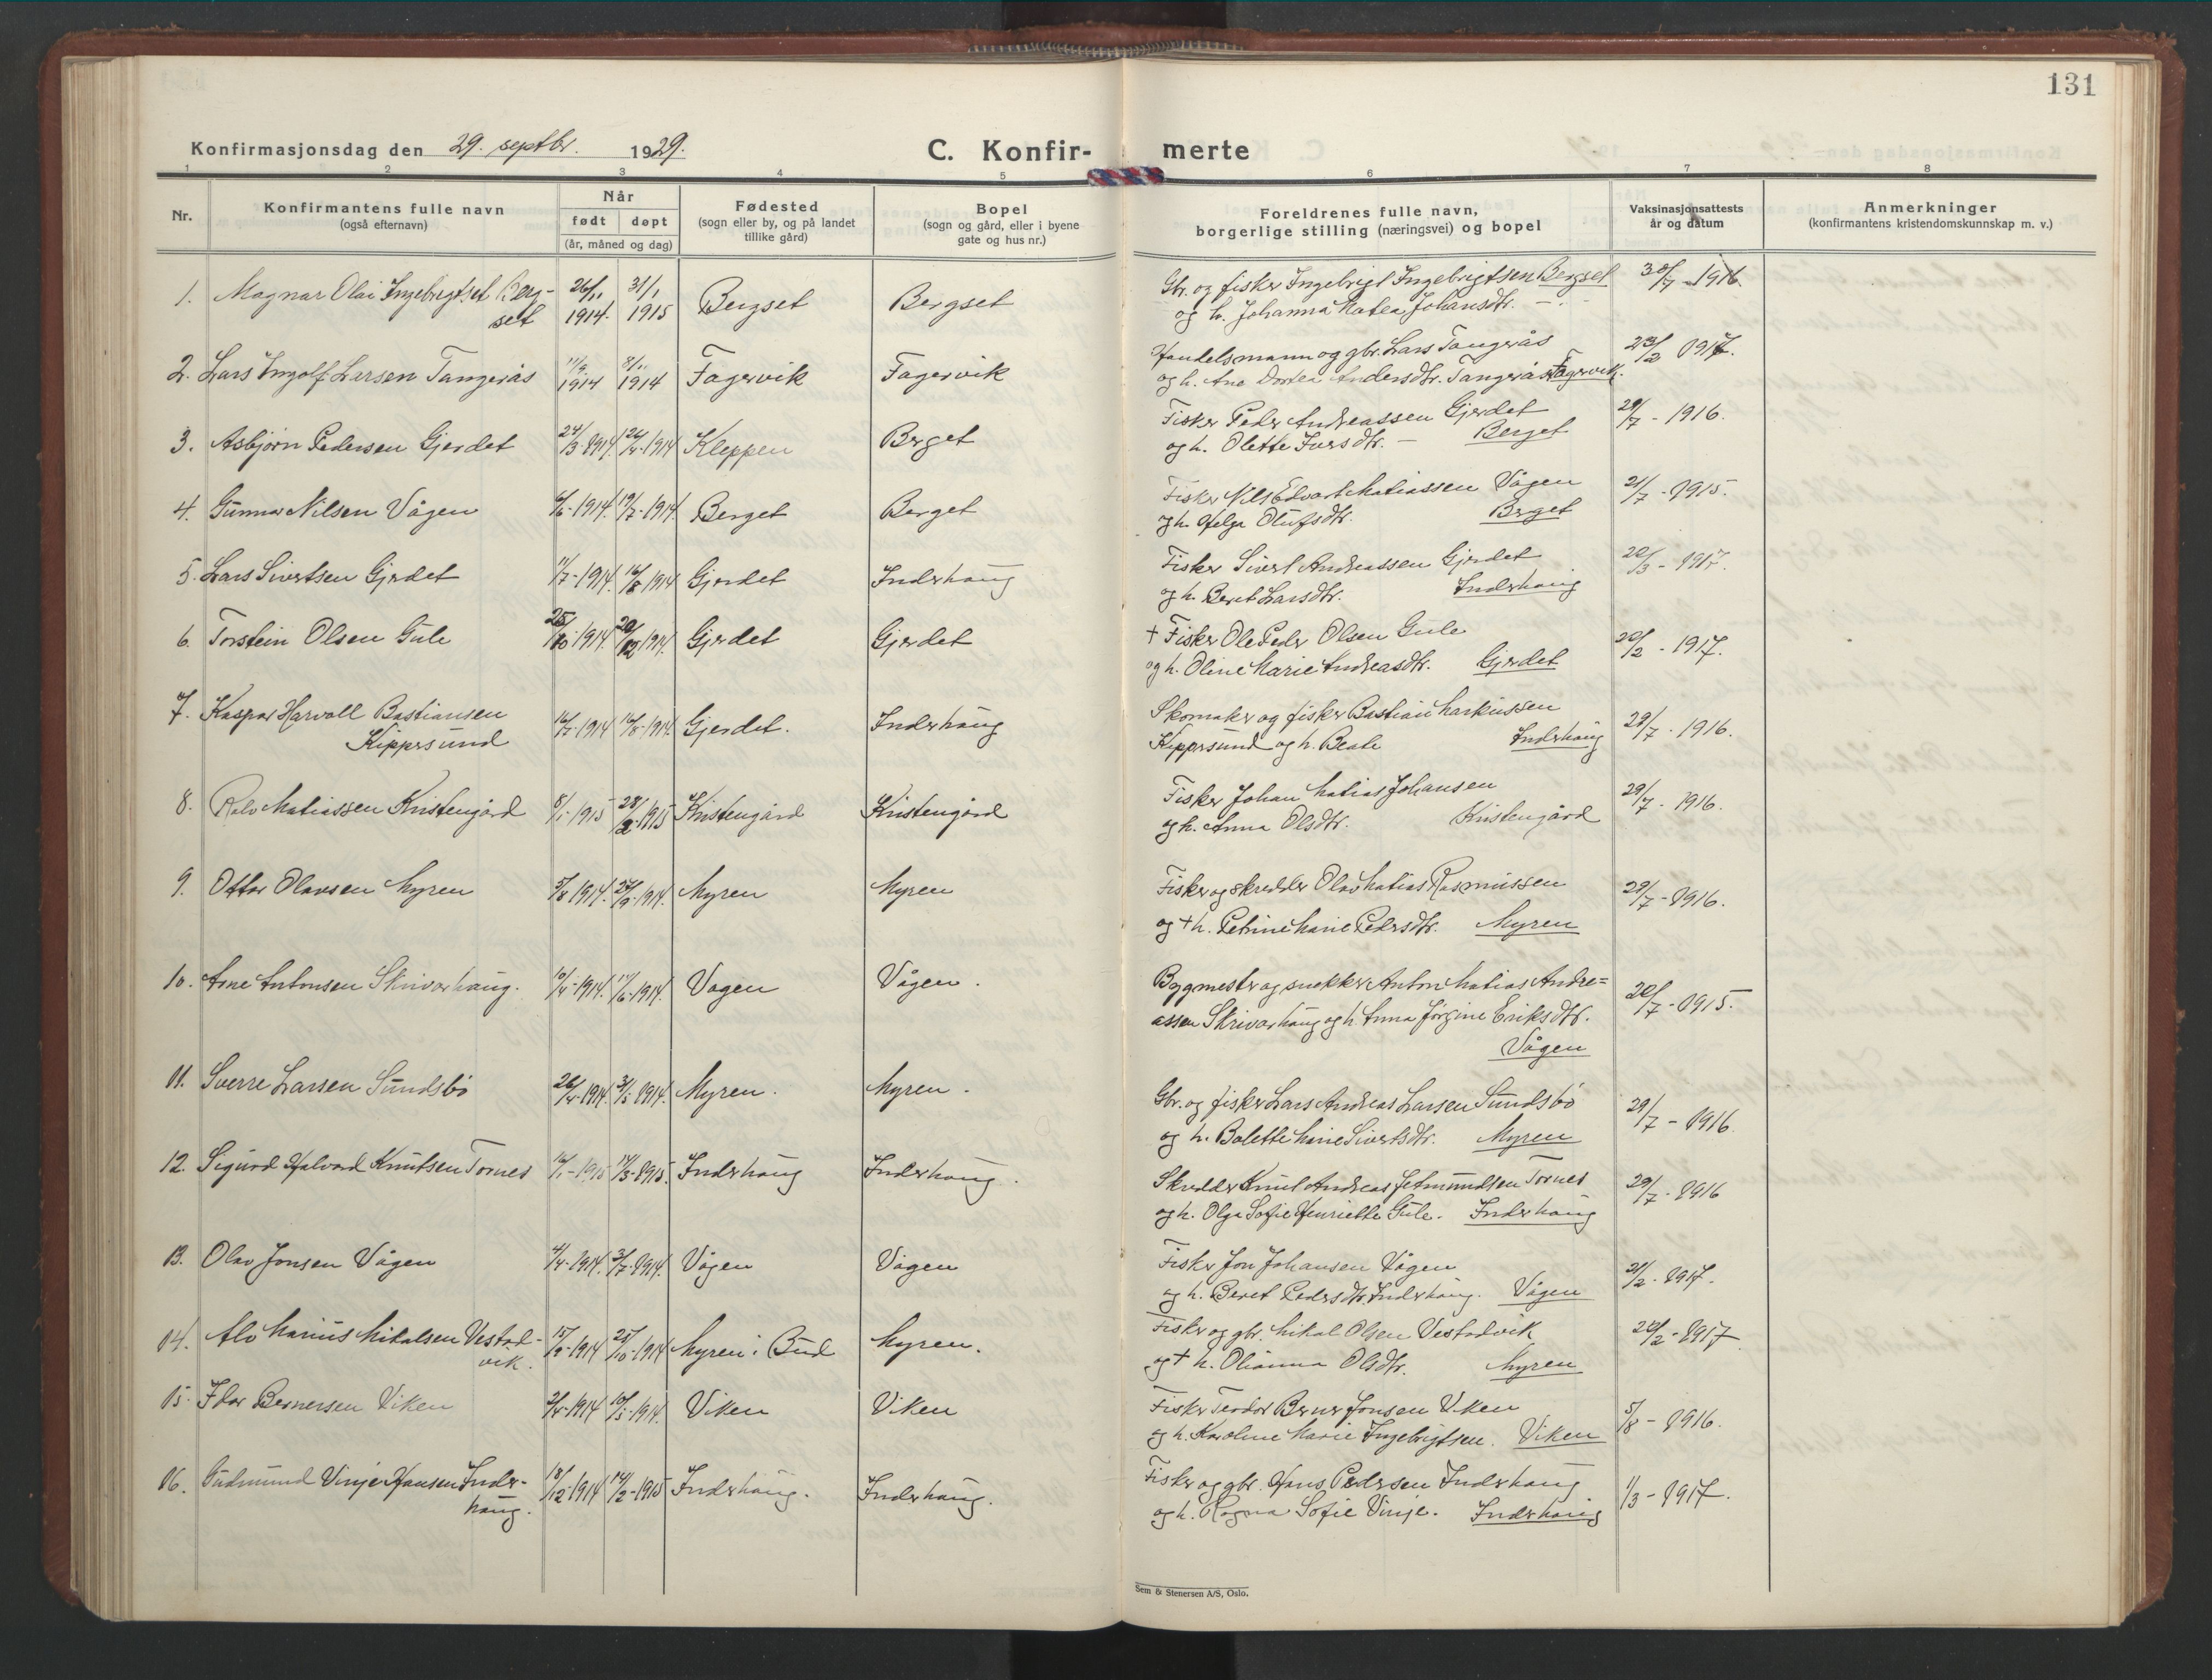 131
Konfirmasjonsdag den 29. septbr. 1929.
C. Konfir- merte
1 2 3 4 5 6 7 8
Nr.
Konfirmantens fulle navn
(også efternavn)
Når
født døpt
(år, måned og dag)
Fødested
(sogn eller by, og på landet
tillike gård)
Bopel
(sogn og gård, eller i byene
gate og hus nr.)
Foreldrenes fulle navn,
borgerlige stilling (næringsvei) og bopel
Vaksinasjonsattests
år og datum
Anmerkninger
(konfirmantens kristendomskunnskap m. v.)
1. Magnar Olai Ingebrigtset Berg- 26/11 31/1 Bergset Bergset Gbr. og fisker Ingebrigt Ingebrigtsen Bergset 30/7 - 1916.
set 1914. 1915 og h. Johanna Matea Johansdtr. — " —
2. Lars Ingolf Larsen Tangerås 11/9 1914 8/11 1914 Fagervik Fagervik Handelsmann og gbr. Lars Tangerås 23/2 1917.
og h. Ane Dortea Andersdtr. Tangerås Fagervik.
3. Asbjørn Pedersen Gjerdet 24/3-1914. 26/4-1914 Kleppen Berget Fisker Peder Andreassen Gjerdet 29/7 - 1916.
og h. Olette Iversdtr. — Berget
4. Gunnar Nilsen Vågen 6/6-1914. 19/7-1914. Berget Berget Fisker Nils Edvart Matiassen Vågen 21/7 - 1915.
og h. Helga Olufsdtr. Berget
5. Lars Sivertsen Gjerdet 11/7-1914. 16/8-1914 Gjerdet Inderhaug Fisker Sivert Andreassen Gjerdet 20/3 - 1917.
og h. Beret Larsdtr. Inderhaug
6. Torstein Olsen Gule 25/10-1914. 20/12-1914. Gjerdet Gjerdet + Fisker Ole Peder Olsen Gule 20/2 - 1917.
og h. Oline Marie Andreasdtr. Gjerdet
7. Kaspar Harvall Bastiansen 16/7-1914 16/8-1914. Gjerdet. Inderhaug Skomaker og fisker Bastian Markussen 29/7 - 1916.
Kippersund Kippersund og h. Beate Inderhaug
8. Rolv Matiassen Kristengård 8/1-1915 28/2-1915 Kristengård Kristengård Fisker Johan Matias Johansen 29/7 - 1916.
og h. Anna Olsdtr. Kristengård
9. Ottar Olavsen Myren 5/8-1914. 27/9-1914. Myren Myren Fisker og skredder Olav Matias Rasmussen 29/7 - 1916.
og + h. Petrine Marie Pedersdtr. Myren
10. Arne Antonsen Skrivarhaug. 10/4-1914. 14/6-1914. Vågen Vågen. Byggmester og snekker Anton Matias Andre= 20/7 - 1915.
assen Skrivarhaug og h. Anna Jørgine Eriksdtr.
Vågen
11. Sverre Larsen Sundsbø 26/4-1914. 31/5-1914. Myren. Myren. Gbr. og fisker Lars Andreas Larsen Sundsbø 29/7 - 1916.
og h. Bolette Marie Sivertsdtr. Myren
12. Sigurd Halvard Knutsen Tornes 16/1-1915 14/3-1915. Inderhaug Inderhaug. Skredder Knut Andreas Jetmundsen Tornes 29/7 - 1916
og h. Olga Sofie Henriette Gule. Inderhaug
13. Olav Jonsen Vågen 4/4-1914. 31/7-1914. Vågen Vågen Fisker Jon Johansen Vågen 21/2 - 1917.
og h. Beret Pedersdtr. Inderhaug. Vågen
14. Alv Marius Mikalsen Vestad- 15/9-1914 25/10-1914 Myren i Bud Myren. Fisker og gbr. Mikal Olsen Vestadvik 20/2 - 1917.
vik. og + h. Olianna Olsdtr. Myren
15. Ivar Bernersen Viken 2/4-1914 10/5-1914. Viken Viken Fisker Teodor Berner Jonsen Viken 5/8 - 1916.
og h. Karoline Marie Ingebrigtsen. Viken
16. Gudmund Vinje Hansen Inder- 18/12-1914 14/2-1915 Inderhaug. Inderhaug. Fisker og gbr. Hans Pedersen Inderhaug 1/3 - 1917.
haug. og h. Ragna Sofie Vinje. Inderhaug
Sem & Stenersen A/S, Oslo.